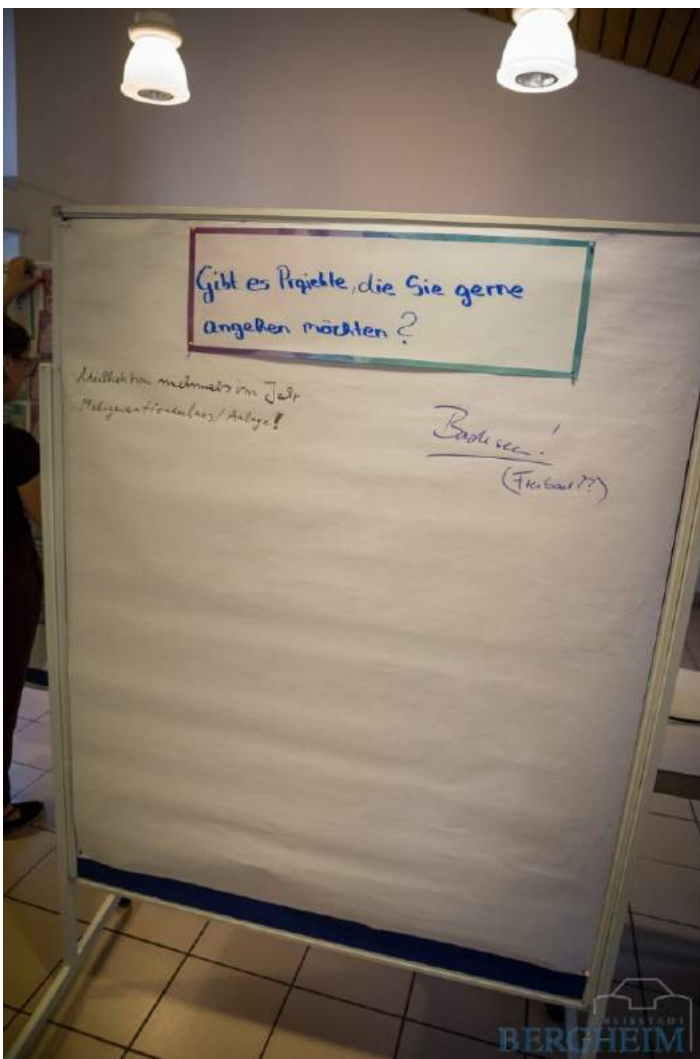 Gibt es Projekte, die Sie gerne
angehen möchten?
Müllaktion mehrmals im Jahr
Mehrgenerationenhaus/Anlage!
Badesee!
(Freibad??)
KREISSTADT
BERGHEIM